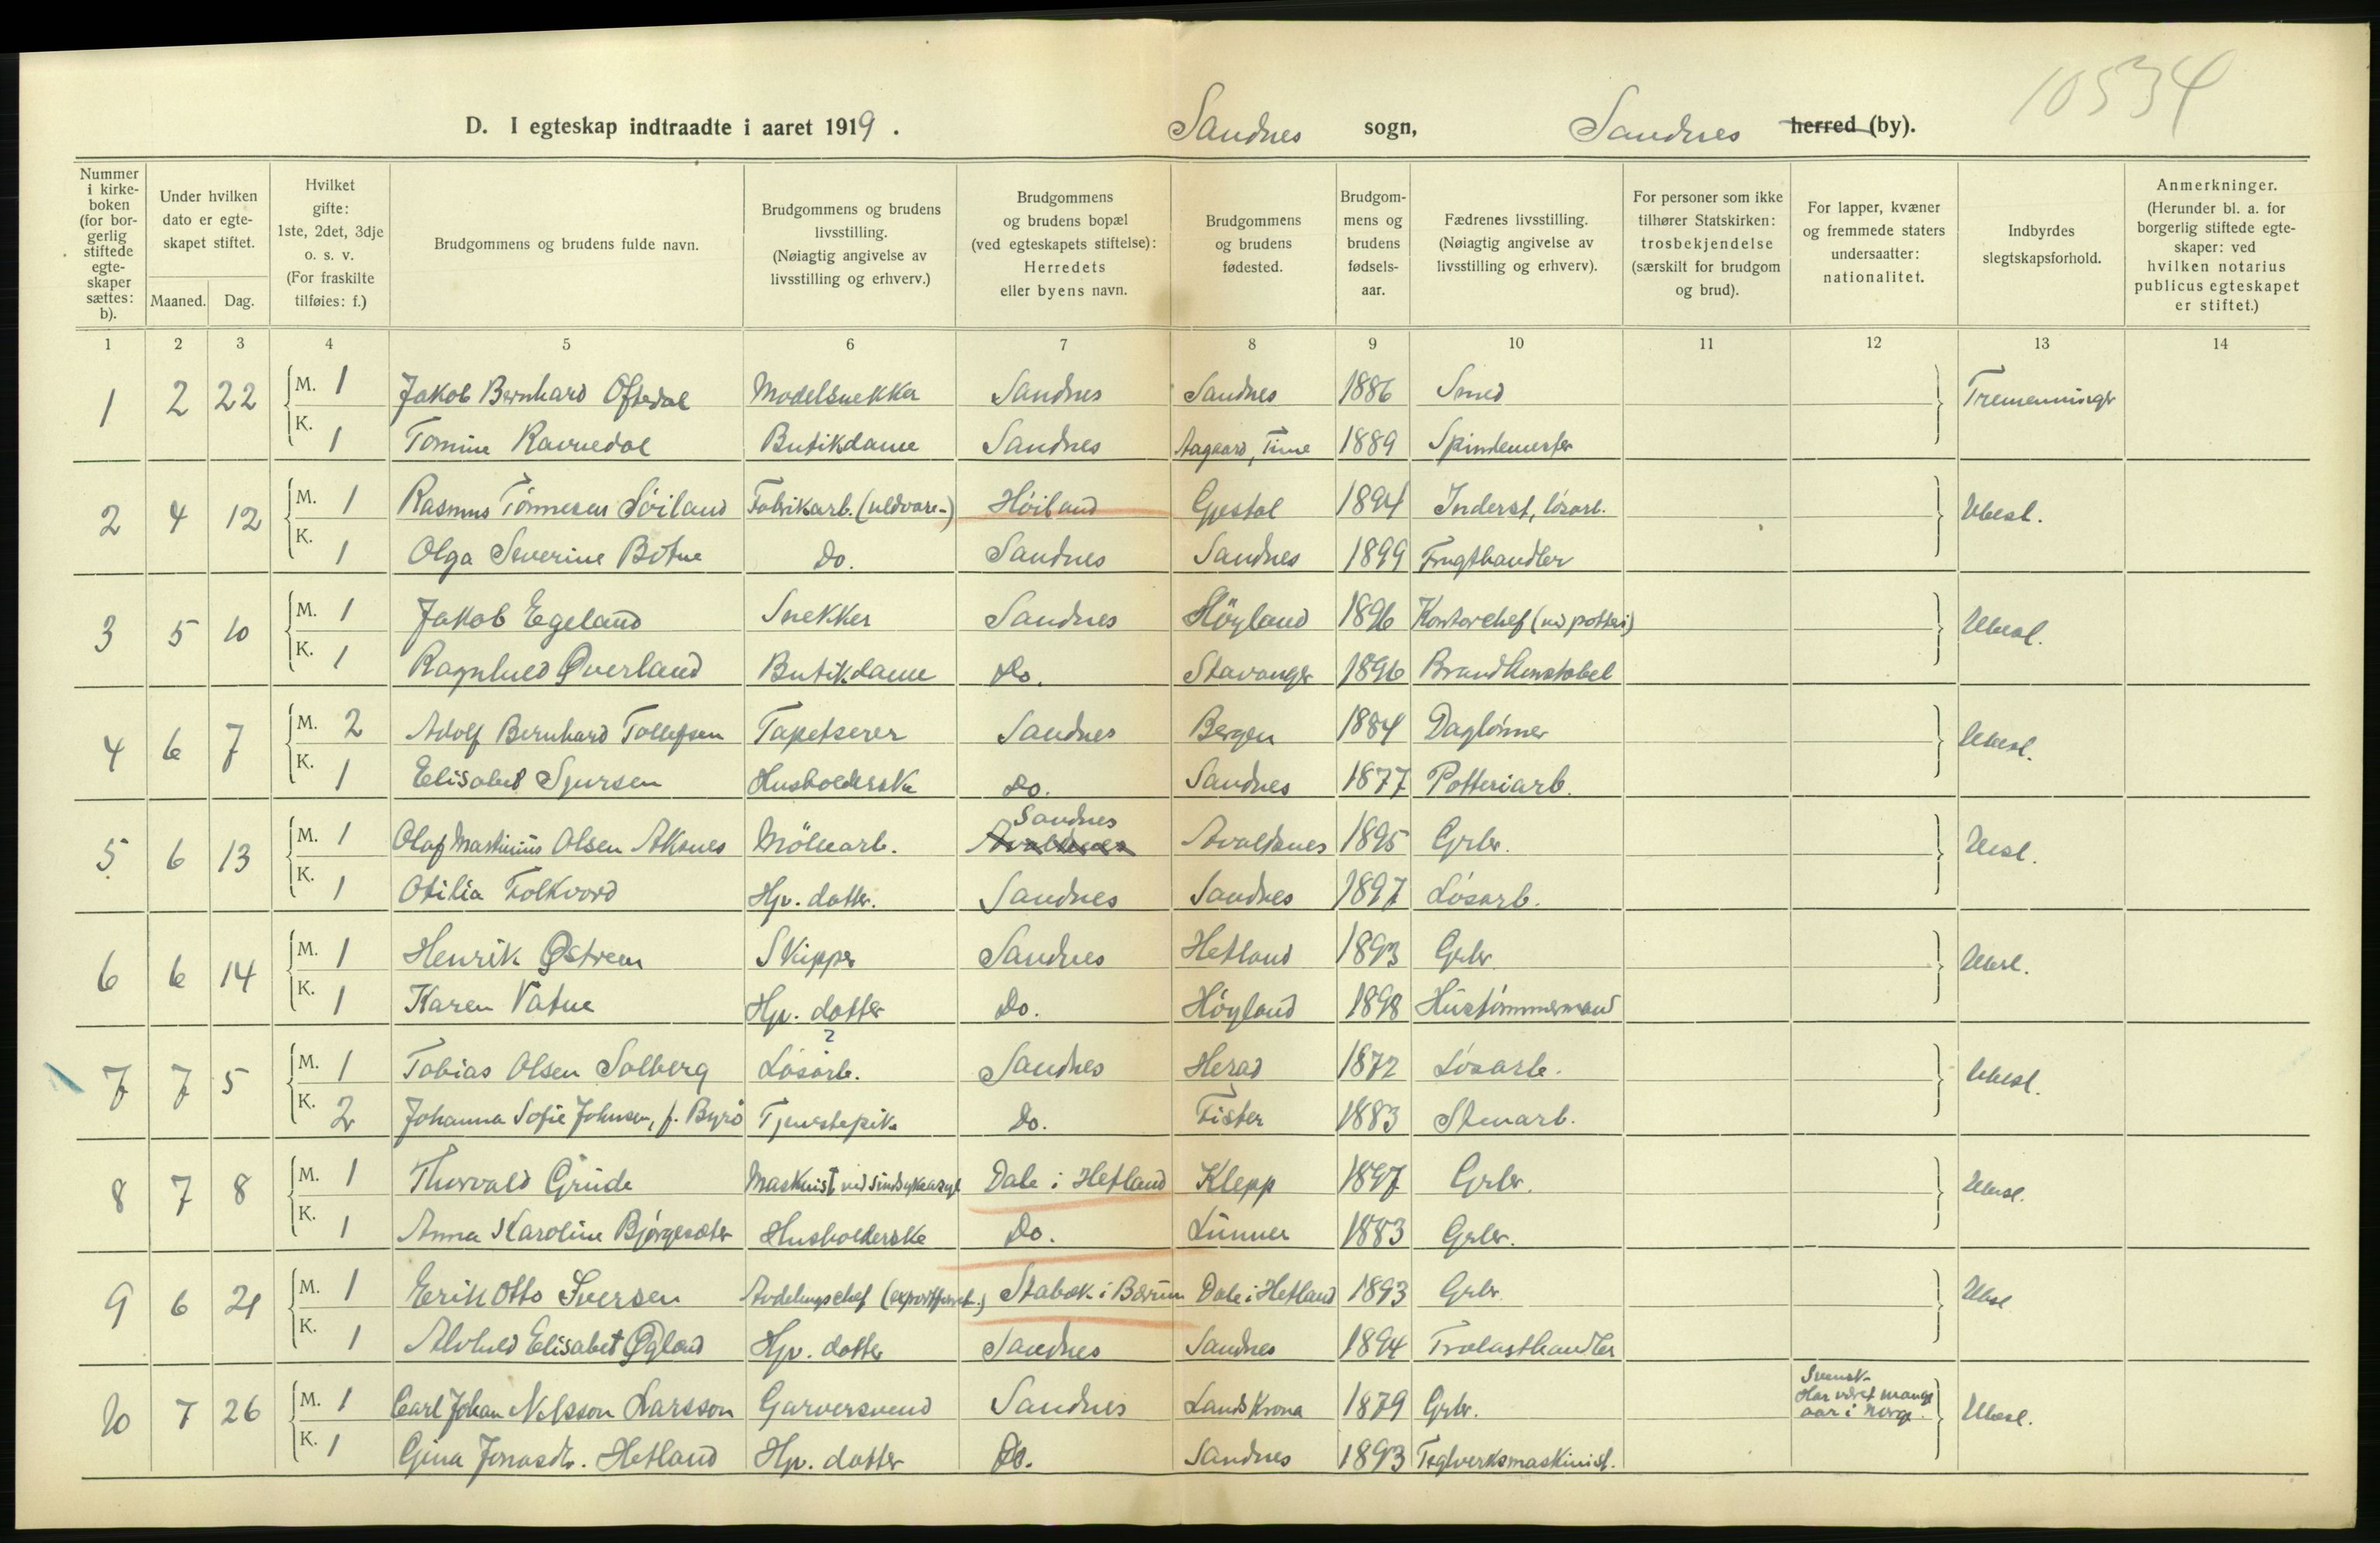 10534
D. I egteskap indtraadte i aaret 1919. Sandnes sogn, Sandnes herred (by).
Nummer i kirkeboken (for borgerlig stiftede egteskaper sættes: b).
Under hvilken dato er egteskapet stiftet.
Maaned. Dag.
Hvilket gifte: 1ste, 2det, 3dje o. s. v. (For fraskilte tilføies: f.)
Brudgommens og brudens fulde navn.
Brudgommens og brudens livsstilling. (Nøiagtig angivelse av livsstilling og erhverv.)
Brudgommens og brudens bopæl (ved egteskapets stiftelse): Herredets eller byens navn.
Brudgommens og brudens fødested.
Brudgommens og brudens fødselsaar.
Fædrenes livsstilling. (Nøiagtig angivelse av livsstilling og erhverv).
For personer som ikke tilhører Statskirken: trosbekjendelse (særskilt for brudgom og brud).
For lapper, kvæner og fremmede staters undersaatter: nationalitet.
Indbyrdes slegtskapsforhold.
Anmerkninger. (Herunder bl. a. for borgerlig stiftede egteskaper: ved hvilken notarius publicus egteskapet er stiftet.)
1 2 3 4 5 6 7 8 9 10 11 12 13 14
1 2 22 M. 1 Jakob Bernhard Oftedal Modelsnekker Sandnes Sandnes 1886 Smed Tremenninger
K. 1 Tomine Ravnedal Butikdame Sandnes Aagaard, Time 1889 Spindemester
2 4 12 M. 1 Rasmus Tönnesen Söiland Fabrikarb. (uldvare-) Höiland Gjestal 1894 Inderst, lösarb. Ubesl.
K. 1 Olga Severine Botne Do. Sandnes Sandnes 1899 Frugthandler
3 5 10 M. 1 Jakob Egeland Snekker Sandnes Höyland 1896 Kontorchef (ved potteri) Ubesl.
K. 1 Ragnhild Øverland Butikdame Do. Stavanger 1896 Brandkonstabel
4 6 7 M. 2 Adolf Bernhard Tollefsen Tapetserer Sandnes Bergen 1884 Daglönner Ubesl.
K. 1 Elisabet Sjursen Husholderske Do. Sandnes 1877 Potteriarb.
5 6 13 M. 1 Olaf Martinius Olsen Aksnes Möllearb. Avaldsnes Sandnes Avaldsnes 1895 Grbr. Ubesl.
K. 1 Otilia Folkvord Hjv. datter. Sandnes Sandnes 1897 Lösarb.
6 6 14 M. 1 Henrik Østrem Skipper Sandnes Hetland 1893 Grbr. Ubesl.
K. 1 Karen Vatne Hjv. datter Do. Höyland 1898 Hustömmermand
7 7 5 M. 1 Tobias Olsen Solberg Lösarb. ? Sandnes Herad 1872 Lösarb. Ubesl.
K. 2 Johanna Sofie Johnsen, f. Byrö Tjenestepike Do. Fister 1883 Stenarb.
8 7 8 M. 1 Thorvald Grude Maskinist ved sindsykeasyl Dale i Hetland Klepp 1897 Grbr. Ubesl.
K. 1 Anna Karoline Björgesæter Husholderske Do. Lunner 1883 Grbr.
9 6 21 M. 1 Erik Otto Iversen Avdelingschef Stabæk i Bærum Dale i Hetland 1893 Grbr. Ubsl
K. 1 Alvhild Elisabet Øglænd Hjv. datter Sandnes Sandnes 1894 Trælasthandler
10 7 26 M. 1 Carl Johan Nilsson Larsson Garversvend Sandnes Landskrona 1879 Grbr. Svensk. Har været mange aar i Norge. Ubesl.
K. 1 Gina Jonasdtr. Hetland Hjv. datter Do. Sandnes 1893 Teglverksmaskinist.